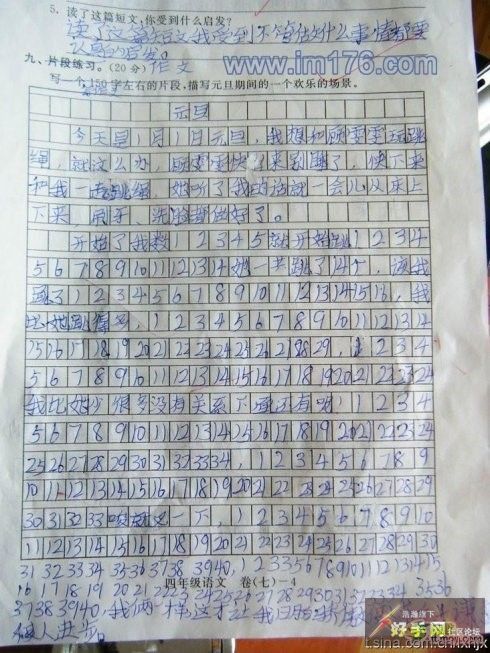 5. 读了这篇短文,你受到什么启发?
读了这篇短文我受到不管做什么事情都要
认真的启发。
www.im176.com
九、片段练习。(20分) 作文
写一个150字左右的片段,描写元旦期间的一个欢乐的场景。
元旦
今天是1月1日元旦,我想和顾雯雯玩跳
绳,就这么办,顾雯雯快起来别睡了,快下来
和我一起跳绳,她听了我的话就一会儿从床上
下来,刷牙、洗脸都做好了。
开始了我数12345就开始跳1234
567891011121314她一共跳了14个,该我
跳了12345678910111213141516,我
比她跳得多,1234567891011121314
151617181920212223242526272829,1234
56789101112131415161718192021222324
我比她少很多没有关系下面还有呀!1234
56789101112131415161718192021222324
25262728293031323334,123456789
1011121314151617181920212223242526272829
30313233 一下,12345678910
1112131415161718192021222324252627282930
31323334353637383940,123356789101112131415
16171819202122232425262728293031323334 3536
37383940,我俩一样这才让我
四年级语文 卷(七)-4
使人进步。
浩瀚旗下
好手网
社区论坛
t.sina.com.cn/xxhjx